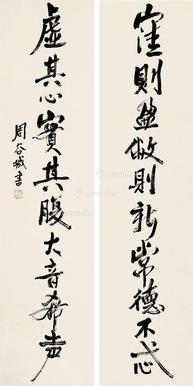 窪則盈敝則新常德不忒
虛其心實其腹大音希声
周谷城書